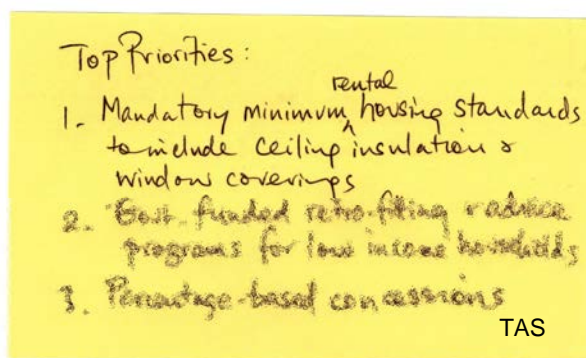 Top Priorities:
1. Mandatory minimum rental housing standards
to include ceiling insulation &
window coverings
2. Govt funded retro-fitting & advice
programs for low income households
3. Percentage-based concessions
TAS